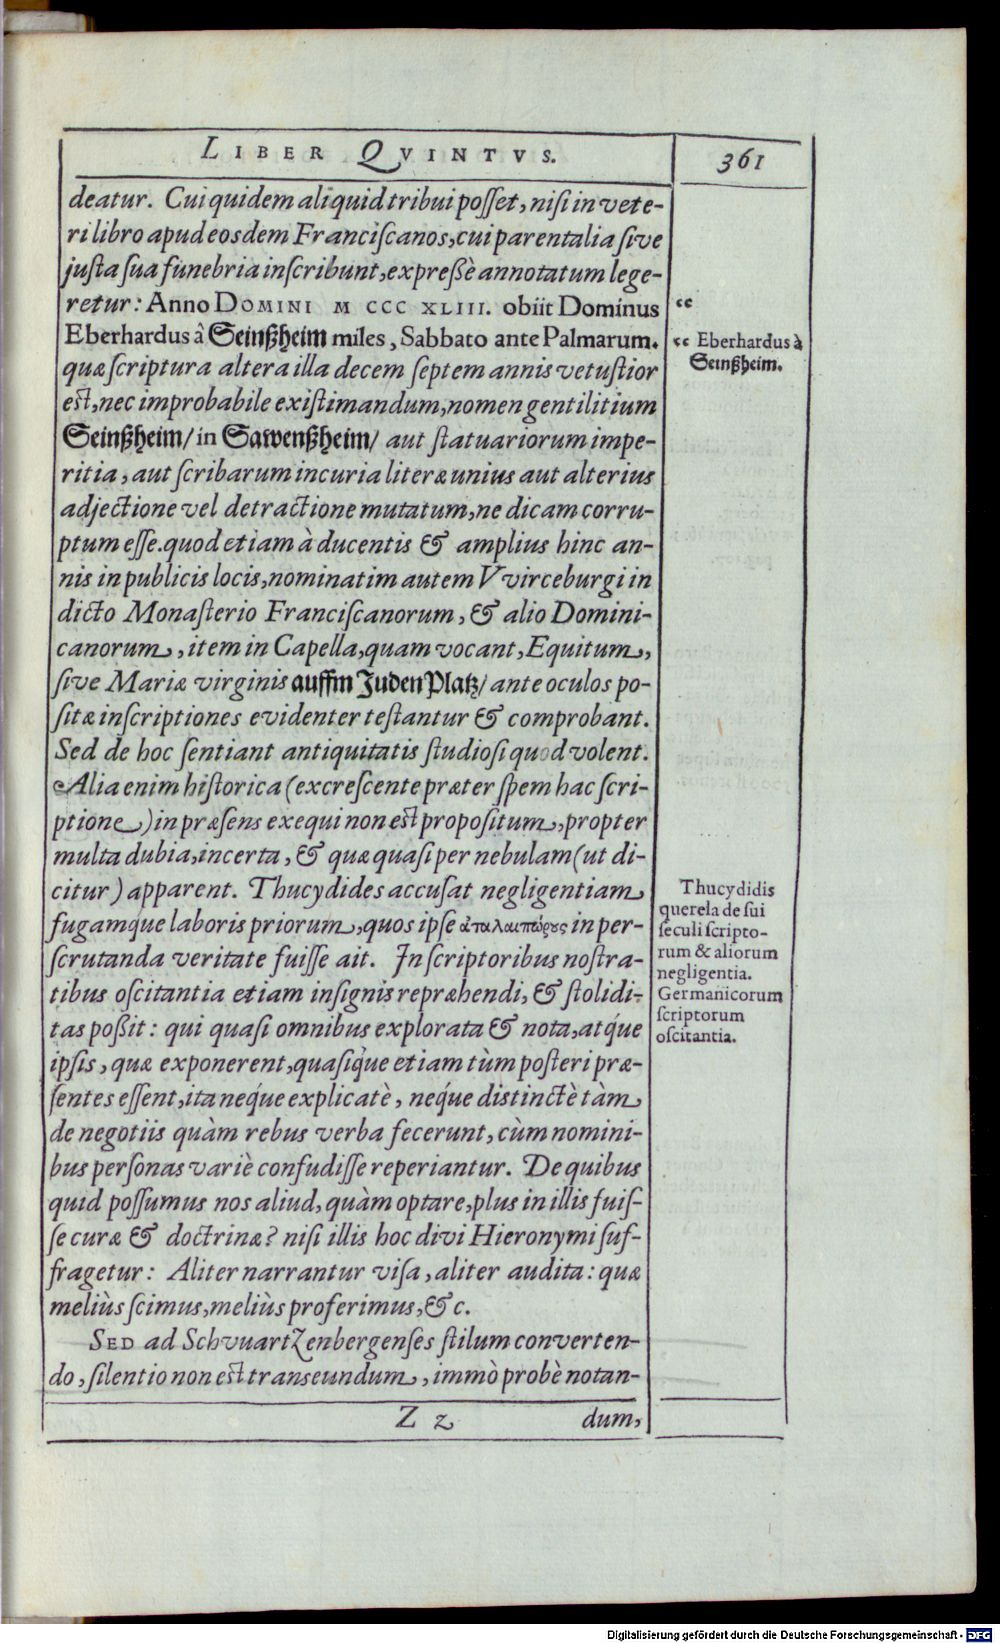 LIBER QVINTVS.
361
deatur. Cui quidem aliquid tribui posset, nisi in vete-
ri libro apud eosdem Franciscanos, cui parentalia sive
justa sua funebria inscribunt, expreßè annotatum lege-
retur: Anno DOMINI M CCC XLIII. obiit Dominus
Eberhardus â Seinßheim miles, Sabbato ante Palmarum.
quæ scriptura altera illa decem septem annis vetustior
est, nec improbabile existimandum, nomen gentilitium
Seinßheim/ in Sawenßheim/ aut statuariorum impe-
ritia, aut scribarum incuria literæ unius aut alterius
adjectione vel detractione mutatum, ne dicam corru-
ptum esse. quod etiam à ducentis & amplius hinc an-
nis in publicis locis, nominatim autem VVirceburgi in
dicto Monasterio Franciscanorum, & alio Domini-
canorum, item in Capella, quam vocant, Equitum,
sive Mariæ virginis auffm Juden Platz/ ante oculos po-
sitæ inscriptiones evidenter testantur & comprobant.
Sed de hoc sentiant antiquitatis studiosi quod volent.
Alia enim historica (excrescente præter spem hac scri-
ptione) in præsens exequi non est propositum, propter
multa dubia, incerta, & quæ quasi per nebulam (ut di-
citur) apparent. Thucydides accusat negligentiam
fugamque laboris priorum, quos ipse ἀταλαιπώρους in per-
scrutanda veritate fuisse ait. In scriptoribus nostra-
tibus oscitantia etiam insignis repræhendi, & stolidi-
tas poßit: qui quasi omnibus explorata & nota, atq́ue
ipsis, quæ exponerent, quasiq́ue etiam tùm posteri præ-
sentes essent, ita neq́ue explicatè, neq́ue distinctè tàm
de negotiis quàm rebus verba fecerunt, cùm nomini-
bus personas variè confudisse reperiantur. De quibus
quid possumus nos aliud, quàm optare, plus in illis fuis-
se curæ & doctrinæ? nisi illis hoc divi Hieronymi suf-
fragetur: Aliter narrantur visa, aliter audita: quæ
meliùs scimus, meliùs proferimus, &c.
SED ad SchvuartZenbergenses stilum converten-
do, silentio non est transeundum, immò probè notan-
Z z
dum,
“
“ Eberhardus à
Seinßheim.
Thucydidis
querela de sui
seculi scripto-
rum & aliorum
negligentia.
Germanicorum
scriptorum
oscitantia.
Digitalisierung gefördert durch die Deutsche Forschungsgemeinschaft - DFG